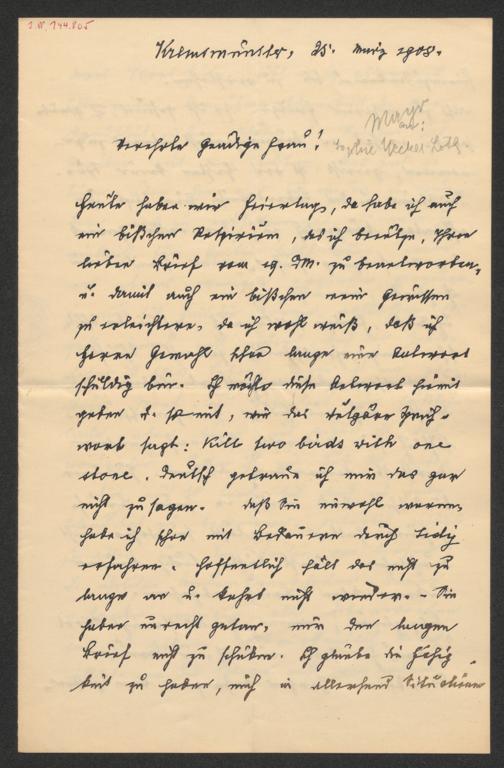 I.N. 144.805
Kremsmünster, 25. März 1908.
Mayr
an:
Verehrte gnädige Frau!
Heute haben wir Feiertag, da habe ich auch
ein bißchen Respirium, das ich benütze, Ihren
lieben Brief vom 19. d. M. zu beantworten,
u. damit auch ein bißchen mein Gewissen
zu erleichtern, da ich wohl weiß, daß ich
Herrn Gemahl schon lange eine Antwort
schuldig bin. Ich möchte diese Antwort hiemit
geben u. somit, wie das vulgäre Sprich-
wort sagt: Kill two birds with one
stone. Deutsch getraue ich mir das gar
nicht zu sagen. Daß Sie unwohl waren,
habe ich schon mit Bedauern durch
erfahren. Hoffentlich hält das nicht zu
lange an u. kehrt nicht wieder. – Sie
haben unrecht getan, mir den langen
Brief nicht zu schicken. Ich glaube die Fähig-
keit zu haben, mich in allerhand Situationen